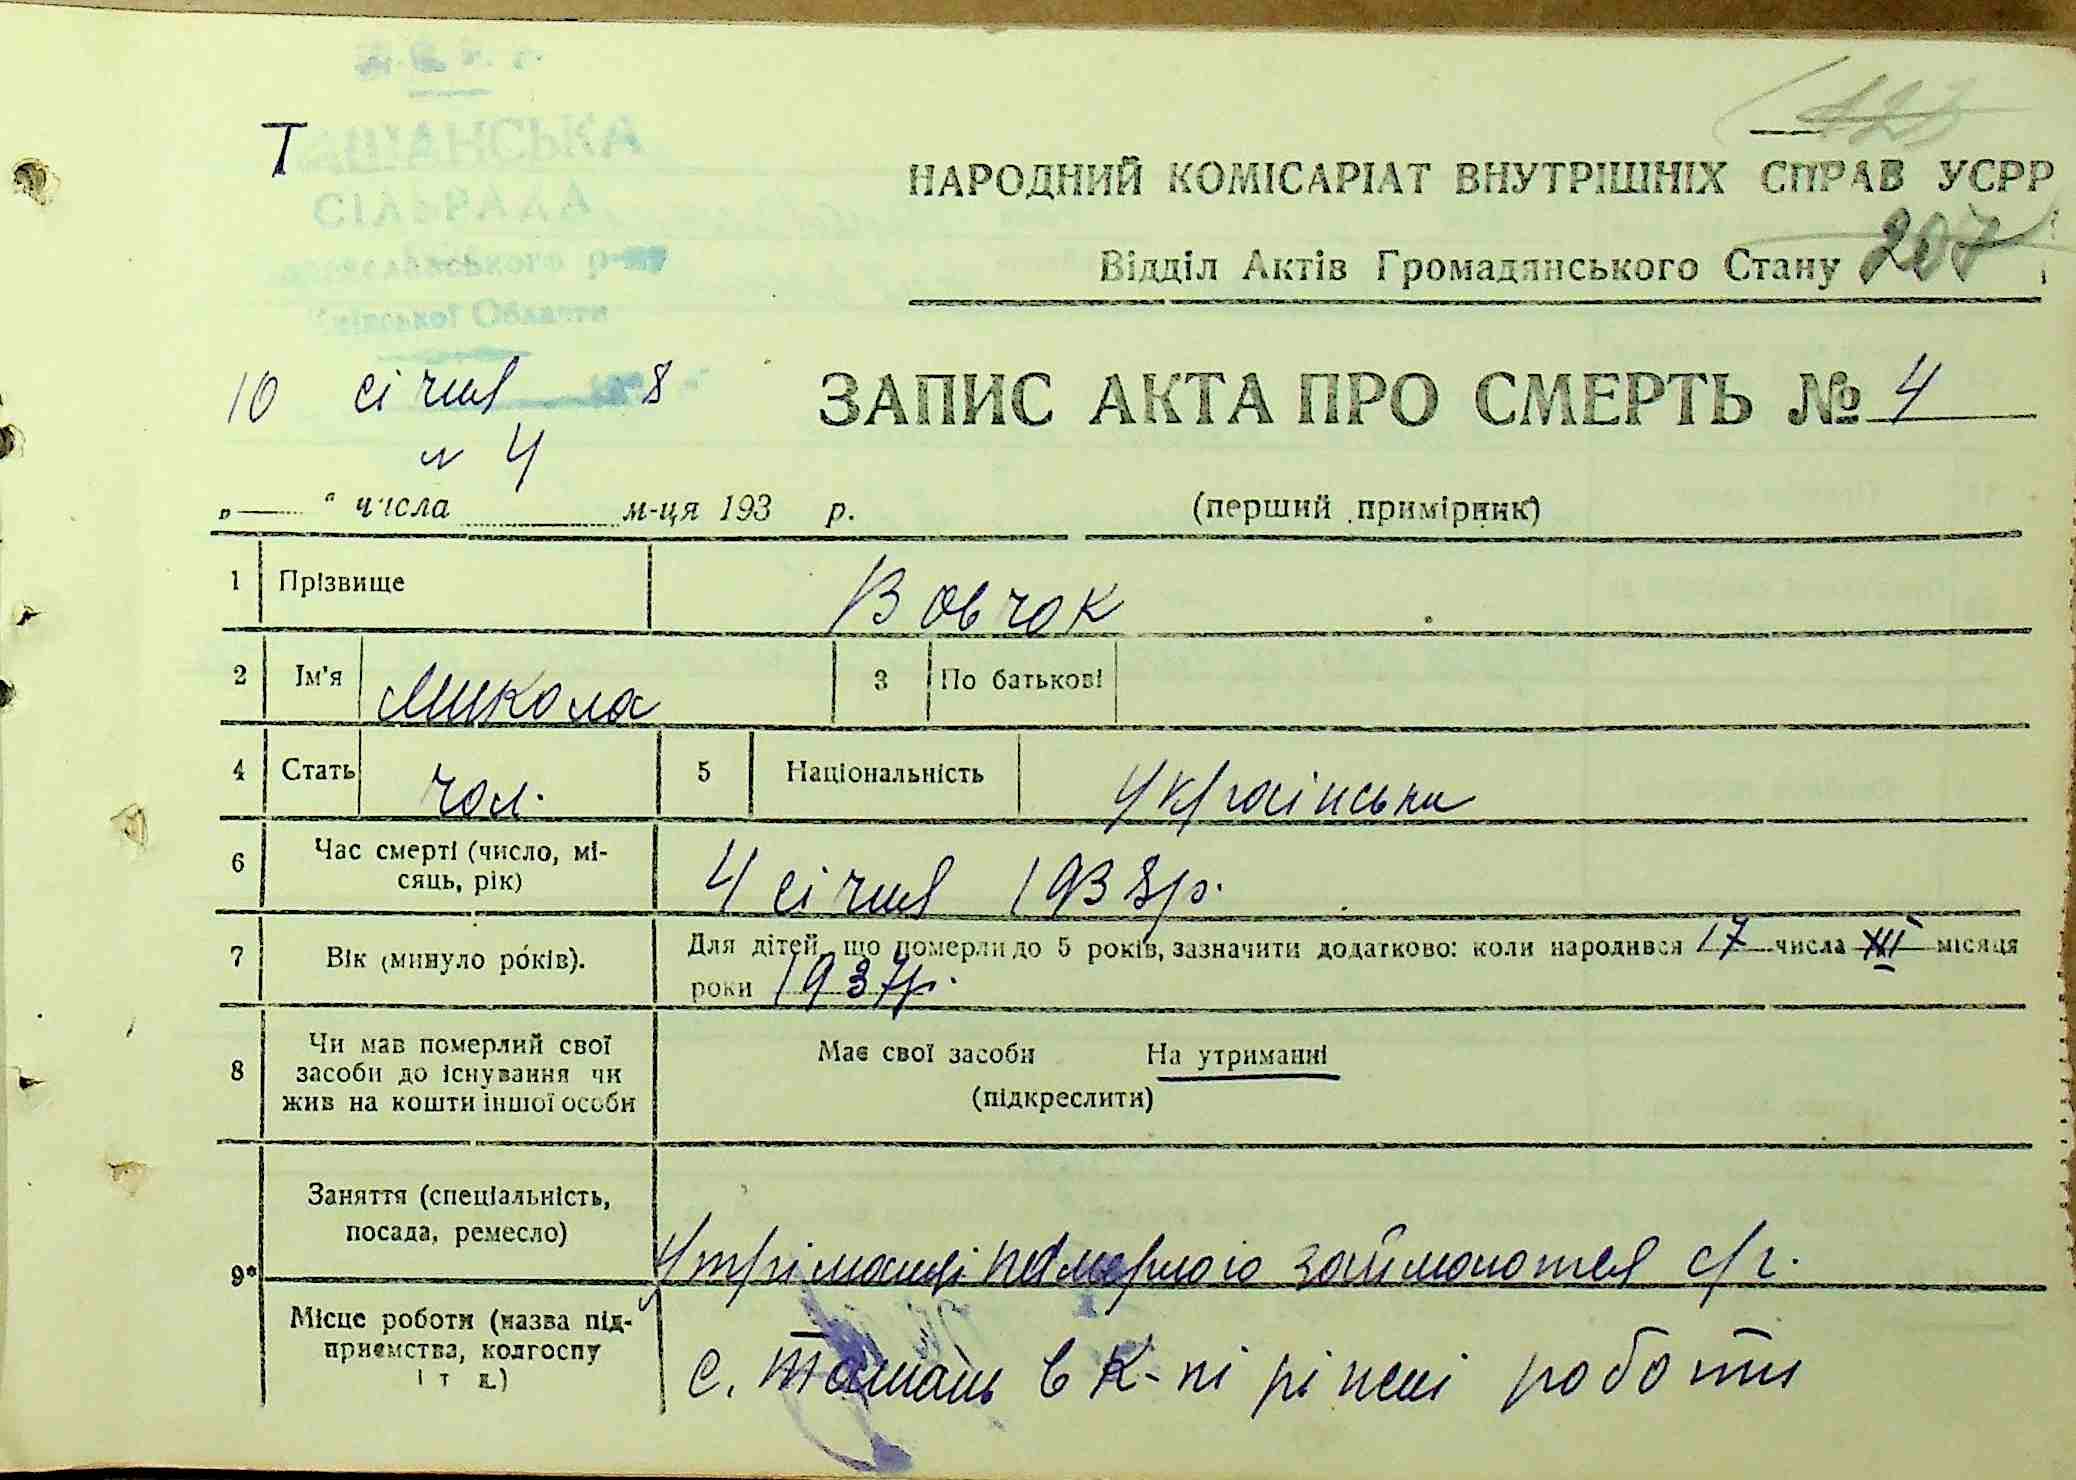 Т
СІЛЬРАДА
Київської Области
123
НАРОДНИЙ КОМІСАРІАТ ВНУТРІШНІХ СПРАВ УСРР
Відділ Актів Громадянського Стану 207
10 січня 8
ЗАПИС АКТА ПРО СМЕРТЬ № 4
4
„ “ числа м-ця 193 р.
(перший примірник)
1 Прізвище Вовчок
2 Ім'я Микола 3 По батькові
4 Стать чол. 5 Національність Українська
6 Час смерті (число, мі-
сяць, рік) 4 січня 1938р.
7 Вік (минуло років). Для дітей, що померли до 5 років, зазначити додатково: коли народився 17 числа XII місяця
роки 1937р.
8 Чи мав померлий свої
засоби до існування чи
жив на кошти іншої особи
Має свої засоби На утриманні
(підкреслити)
9* Заняття (спеціальність,
посада, ремесло)
померлого займаются с/г.
Місце роботи (назва під-
приємства, колгоспу
і т д.)
с. Ташань в к-пі ріжні роботи